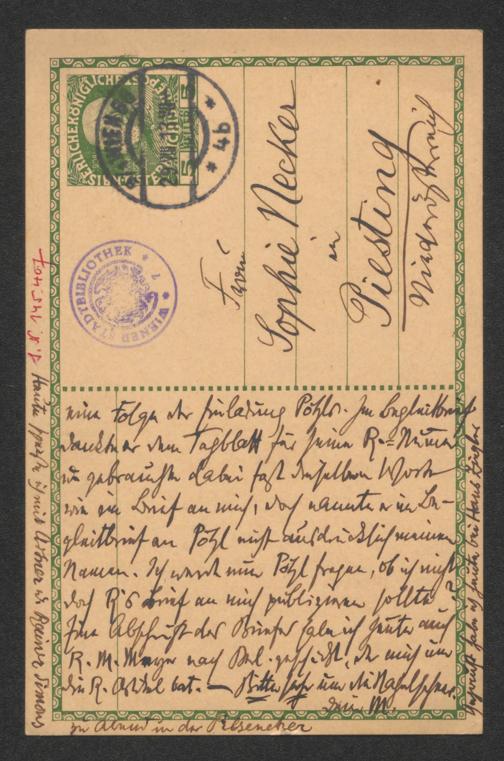 KAISERLICHEKÖNIGLICHE ÖSTERREICHISCHE POST
5 HELLER 5
WIEN
* 4b *
WIENER STADTBIBLIOTHEK * 7 *
Frau
Sophie Necker
in
Piesting
Niederösterreich
eine Folge der Einladung Pötzls. Im Begleitbrief
dankte er dem Tagblatt für seine R.=Nummer
u gebrauchte dabei fast dieselben Worte
wie im Brief an mich, doch nannte er im Be-
gleitbrief an Pötzl nicht ausdrücklich meinen
Namen. Ich werde nun Pötzl fragen, ob ich nicht
doch R's Brief an mich publizieren sollte?
Eine Abschrift des Briefes habe ich heute auch
R. M. Meyer nach Berl. geschickt, der mich um
die R. bat. – Bitte sehr um die
Dein M.
Heute speiste ich mit u Simons
zu Abend in der Pilsenetzer
habe ich heute bei Hans